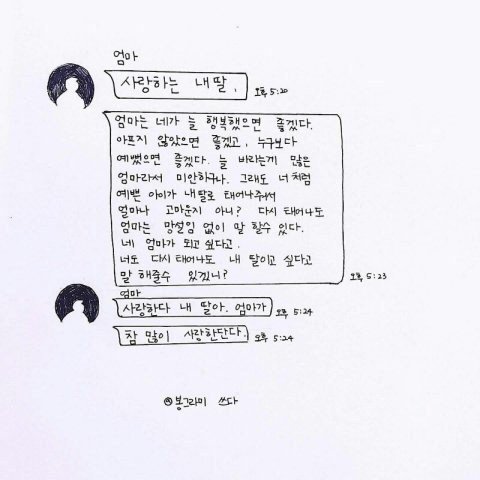 엄마
사랑하는 내 딸.
오후 5:20
엄마는 네가 늘 행복했으면 좋겠다.
아프지 않았으면 좋겠고, 누구보다
예뻤으면 좋겠다. 늘 바라는게 많은
엄마라서 미안하구나. 그래도 너처럼
예쁜 아이가 내 딸로 태어나주어서
얼마나 고마운지 아니? 다시 태어나도
엄마는 망설임 없이 말 할수 있다.
네 엄마가 되고 싶다고.
너도 다시 태어나도 내 딸이고 싶다고
말 해줄수 있겠니?
오후 5:23
엄마
사랑한다 내 딸아. 엄마가
오후 5:24
참 많이 사랑한단다.
오후 5:24
봉그라미 쓰다